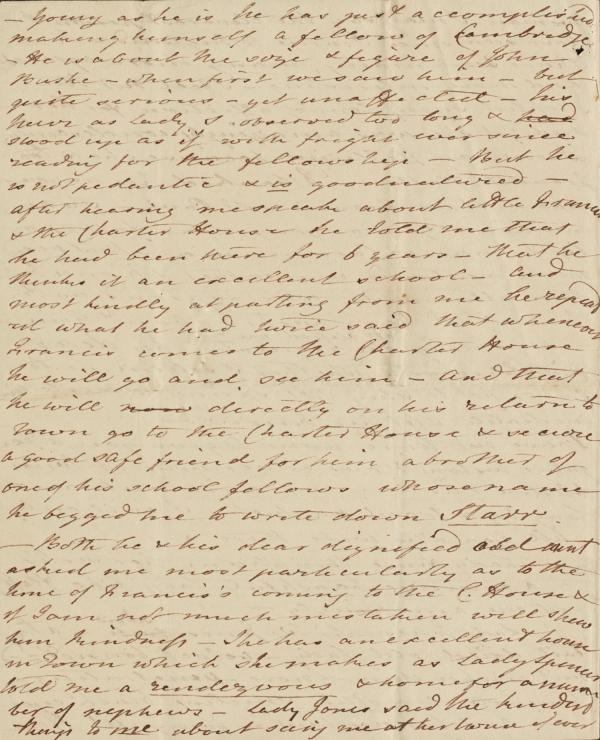 – Young as he is he has just accomplished
making himself a fellow of Cambridge
– He is about the size & figure of John
Bushe – when first we saw him – but
quite serious – yet unaffected – his
hair as Lady S observed too long & had
stood up as if with fright ever since
reading for the fellowship – But he
is not pedantic & is goodnatured –
after hearing me speak about little Francis
& the Charter House he told me that
he had been there for 6 years – that he
thinks it an excellent school – and
most kindly at parting from me he repeat
ed what he had twice said that whenever
Francis comes to the Charter House
he will go and see him – and that
he will now directly on his return to
Town go to the Charter House & secure
a good safe friend for him a brother of
one of his school fellows whose name
he begged me to write down Starr.
– Both he & his dear dignified old aunt
asked me most particularly as to the
time of Francis's coming to the C. House &
if I am not much mistaken will shew
him kindness – She has an excellent house
in Town which she makes as Lady Spencer
told me a rendezvous & home for a num
ber of nephews – Lady Jones said the kindest
things to me about seeing me at her house if ever